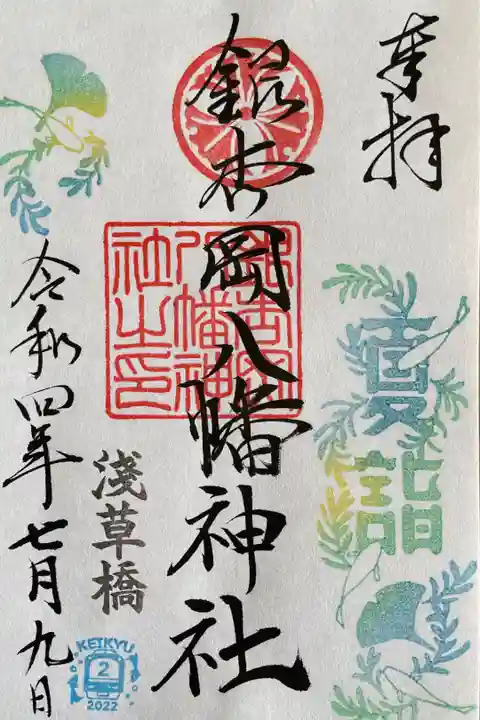 奉拝
夏詣
銀杏岡八幡神社
銀杏岡
八幡神
社之印
淺草橋
令和四年七月九日
KEIKYU
2
2022